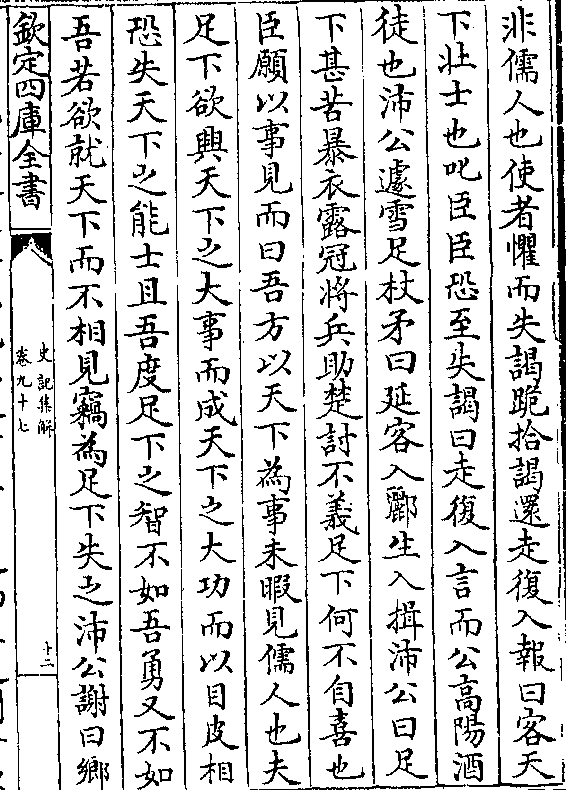 非儒人也使者懼而失謁跪拾謁還走復入報曰客天
下壯士也叱臣臣恐至失謁曰走復入言而公高陽酒
徒也沛公遽雪足杖矛曰延客入酈生入揖沛公曰足
下甚苦暴衣露冠將兵助楚討不義足下何不自喜也
臣願以事見而曰吾方以天下為事未暇見儒人也夫
足下欲興天下之大事而成天下之大功而以目皮相
恐失天下之能士且吾度足下之智不如吾勇又不如
吾若欲就天下而不相見竊為足下失之沛公謝曰鄉
欽定四庫全書
史記集解
卷九十七
十二